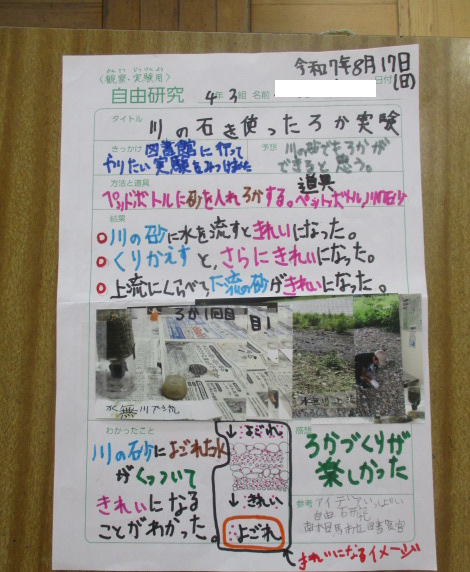 令和7年8月17日
(日)
〈観察・実験用〉
自由研究 4年3組 名前
日付
タイトル
川の石を使ったろか実験
きっかけ 図書館に行って
やりたい実験をみつけた
予想 川の砂でもろかが
できると思う。
方法と道具
道具
ペットボトルに砂を入れろかする。ペットボトル,川の砂
結果
川の砂に水を流すときれいになった。
くりかえすと、さらにきれいになった。
上流にくらべて,下流の砂がきれいになった。
ろか1回目
水無川下流
わかったこと
川の砂によごれた水
がくっついて
きれいになる
ことがわかった。
↓よごれ
↓きれい
よごれ
きれいになるイメージ
感想
ろかづくりが
楽しかった
参考
自由研究